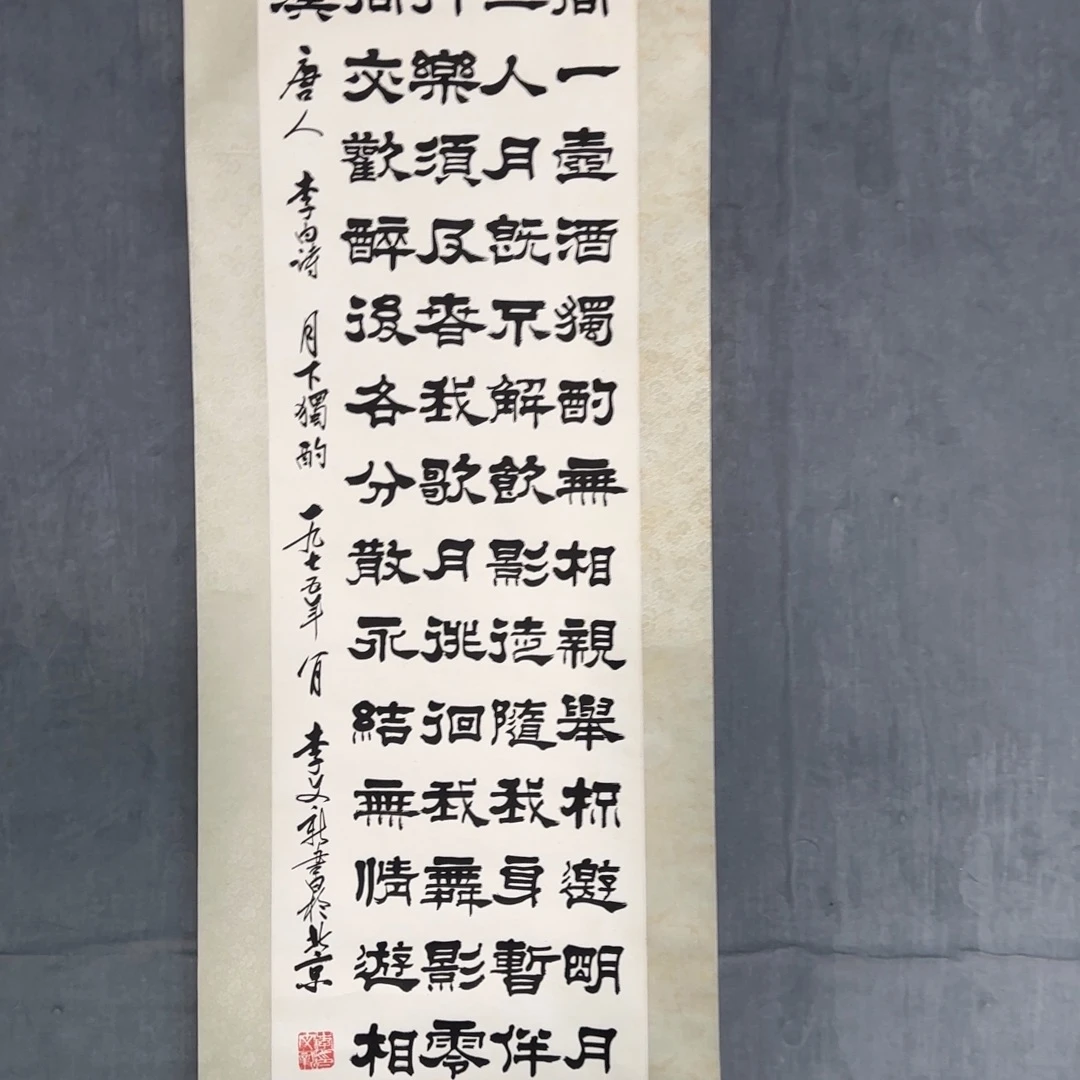 間一壺酒獨酌無相親舉杯邀明月
三人月既不解飲影徒隨我身暫伴
行樂須及春我歌月徘徊我舞影零
同交歡醉後各分散永結無情遊相
漢
唐人 李白詩 月下獨酌 一九七五年 八月 李文新書於北京